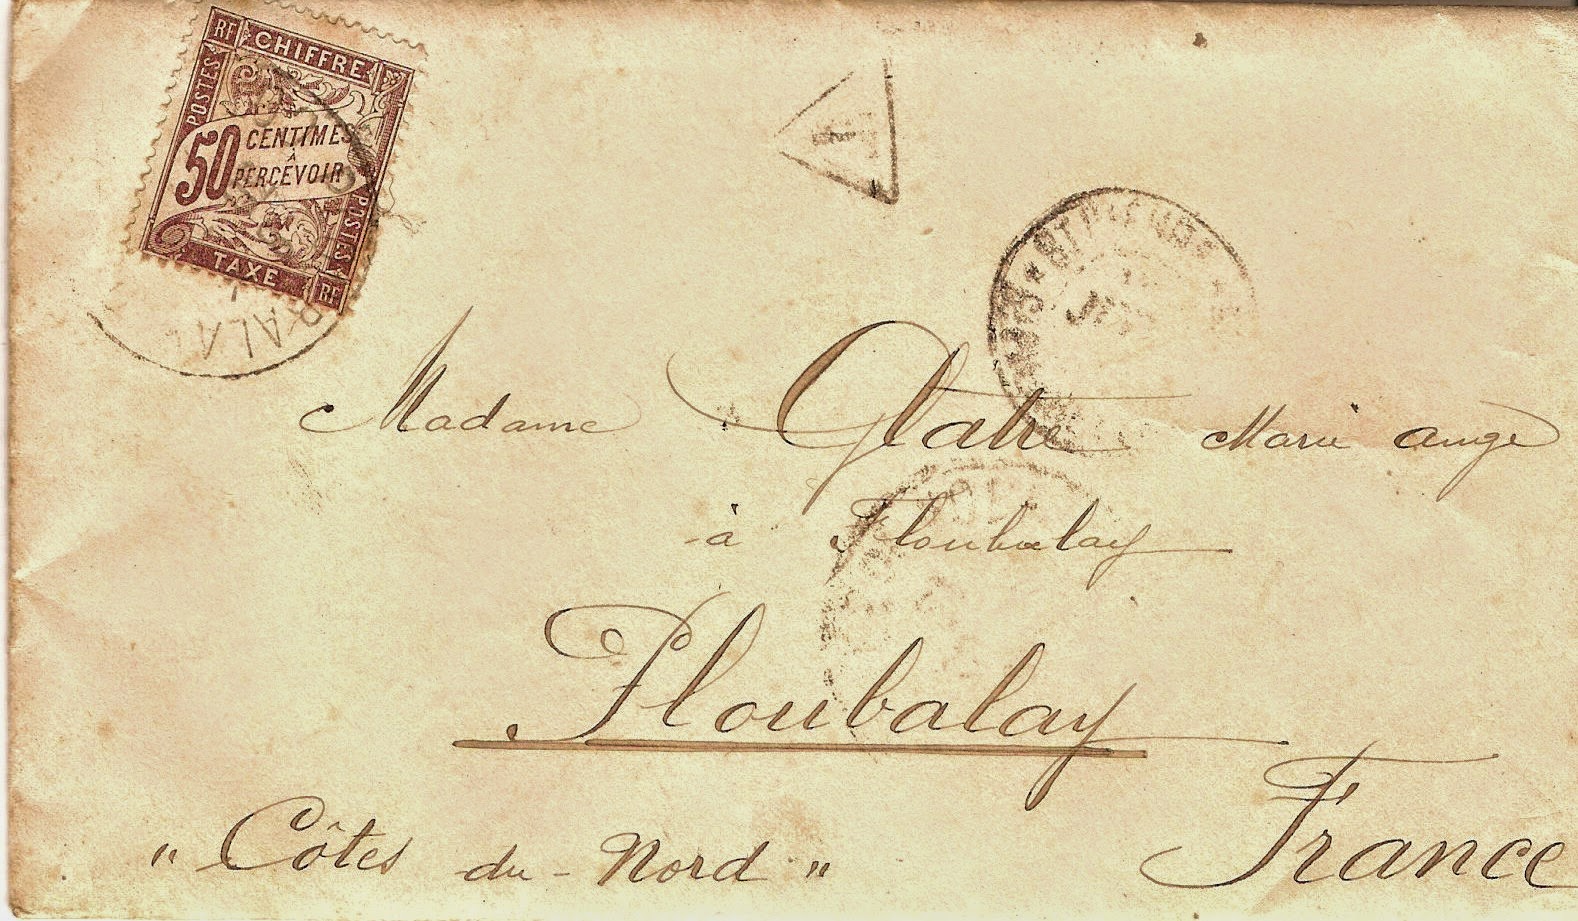 RF CHIFFRE
POSTES
50 CENTIMES
À
PERCEVOIR
POSTES
TAXE RF
BALAY
T
ST PIERRE
Madame Glatre Marie ange
à Ploubalay
Ploubalay
France
"Côtes du-Nord"